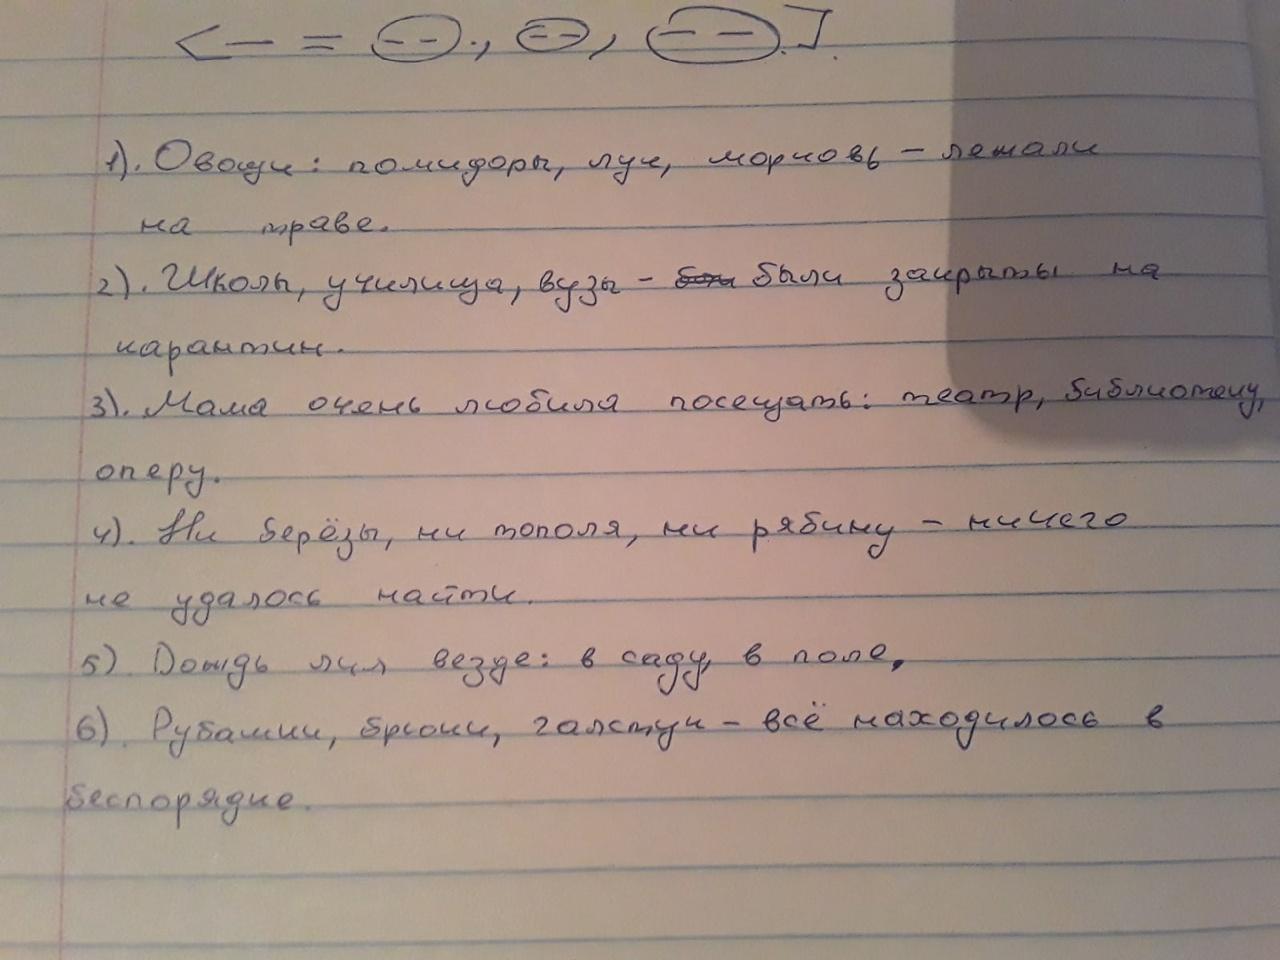 1). Овощи: помидоры, лук, морковь – лежали
на траве.
2). Школы, училища, вузы – были закрыты на
карантин.
3). Мама очень любила посещать: театр, библиотеку,
оперу.
4). Ни берёзы, ни тополя, ни рябину – ничего
не удалось найти.
5) Дождь лил везде: в саду, в поле,
6). Рубашки, брюки, галстук – всё находилось в
беспорядке.